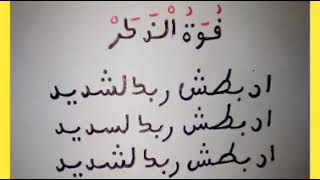 قُوَةُ الْذَكَرْ
ان بطش ربك لشديد
ان بطش ربك لسديد
ان بطش ربك لشديد